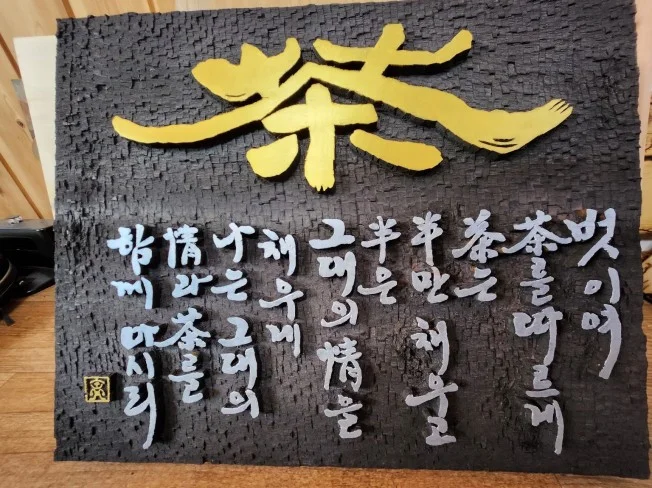 茶
벗이여
茶를 따르게
茶는
半만 채우고
半은
그대의 情을
채우게
나는 그대의
情과 茶를
함께 마시리